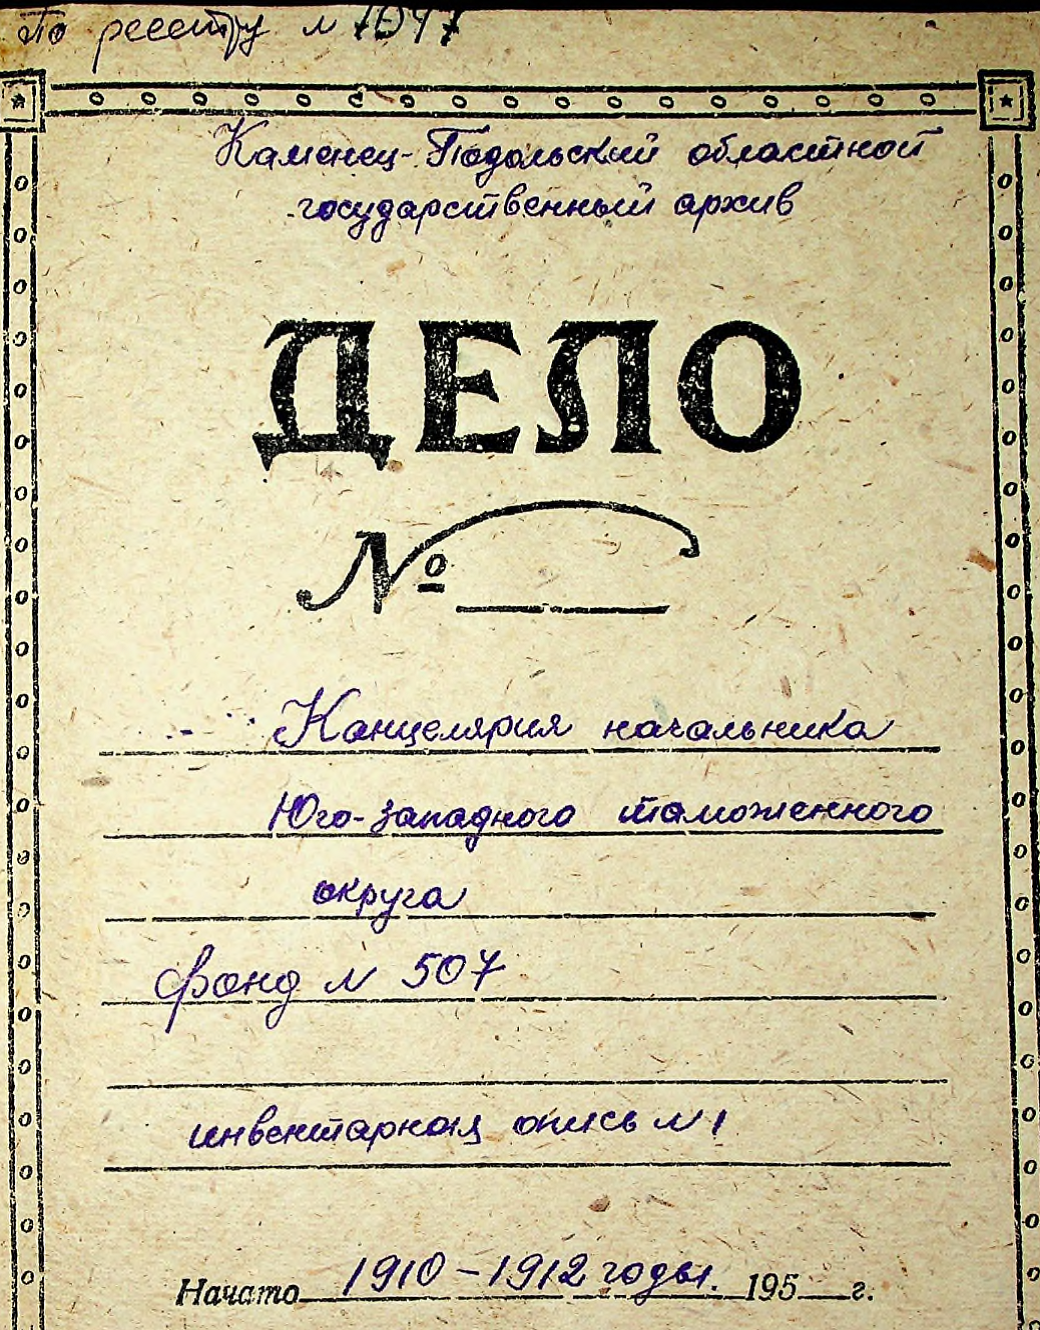 По реестру № 1047
Каменец-Подольский областной
государственный архив
ДЕЛО
№
Канцелярия начальника
Юго-западного таможенного
округа
фонд № 507
инвентарная опись № 1
Начато 1910-1912 годы. 195 г.